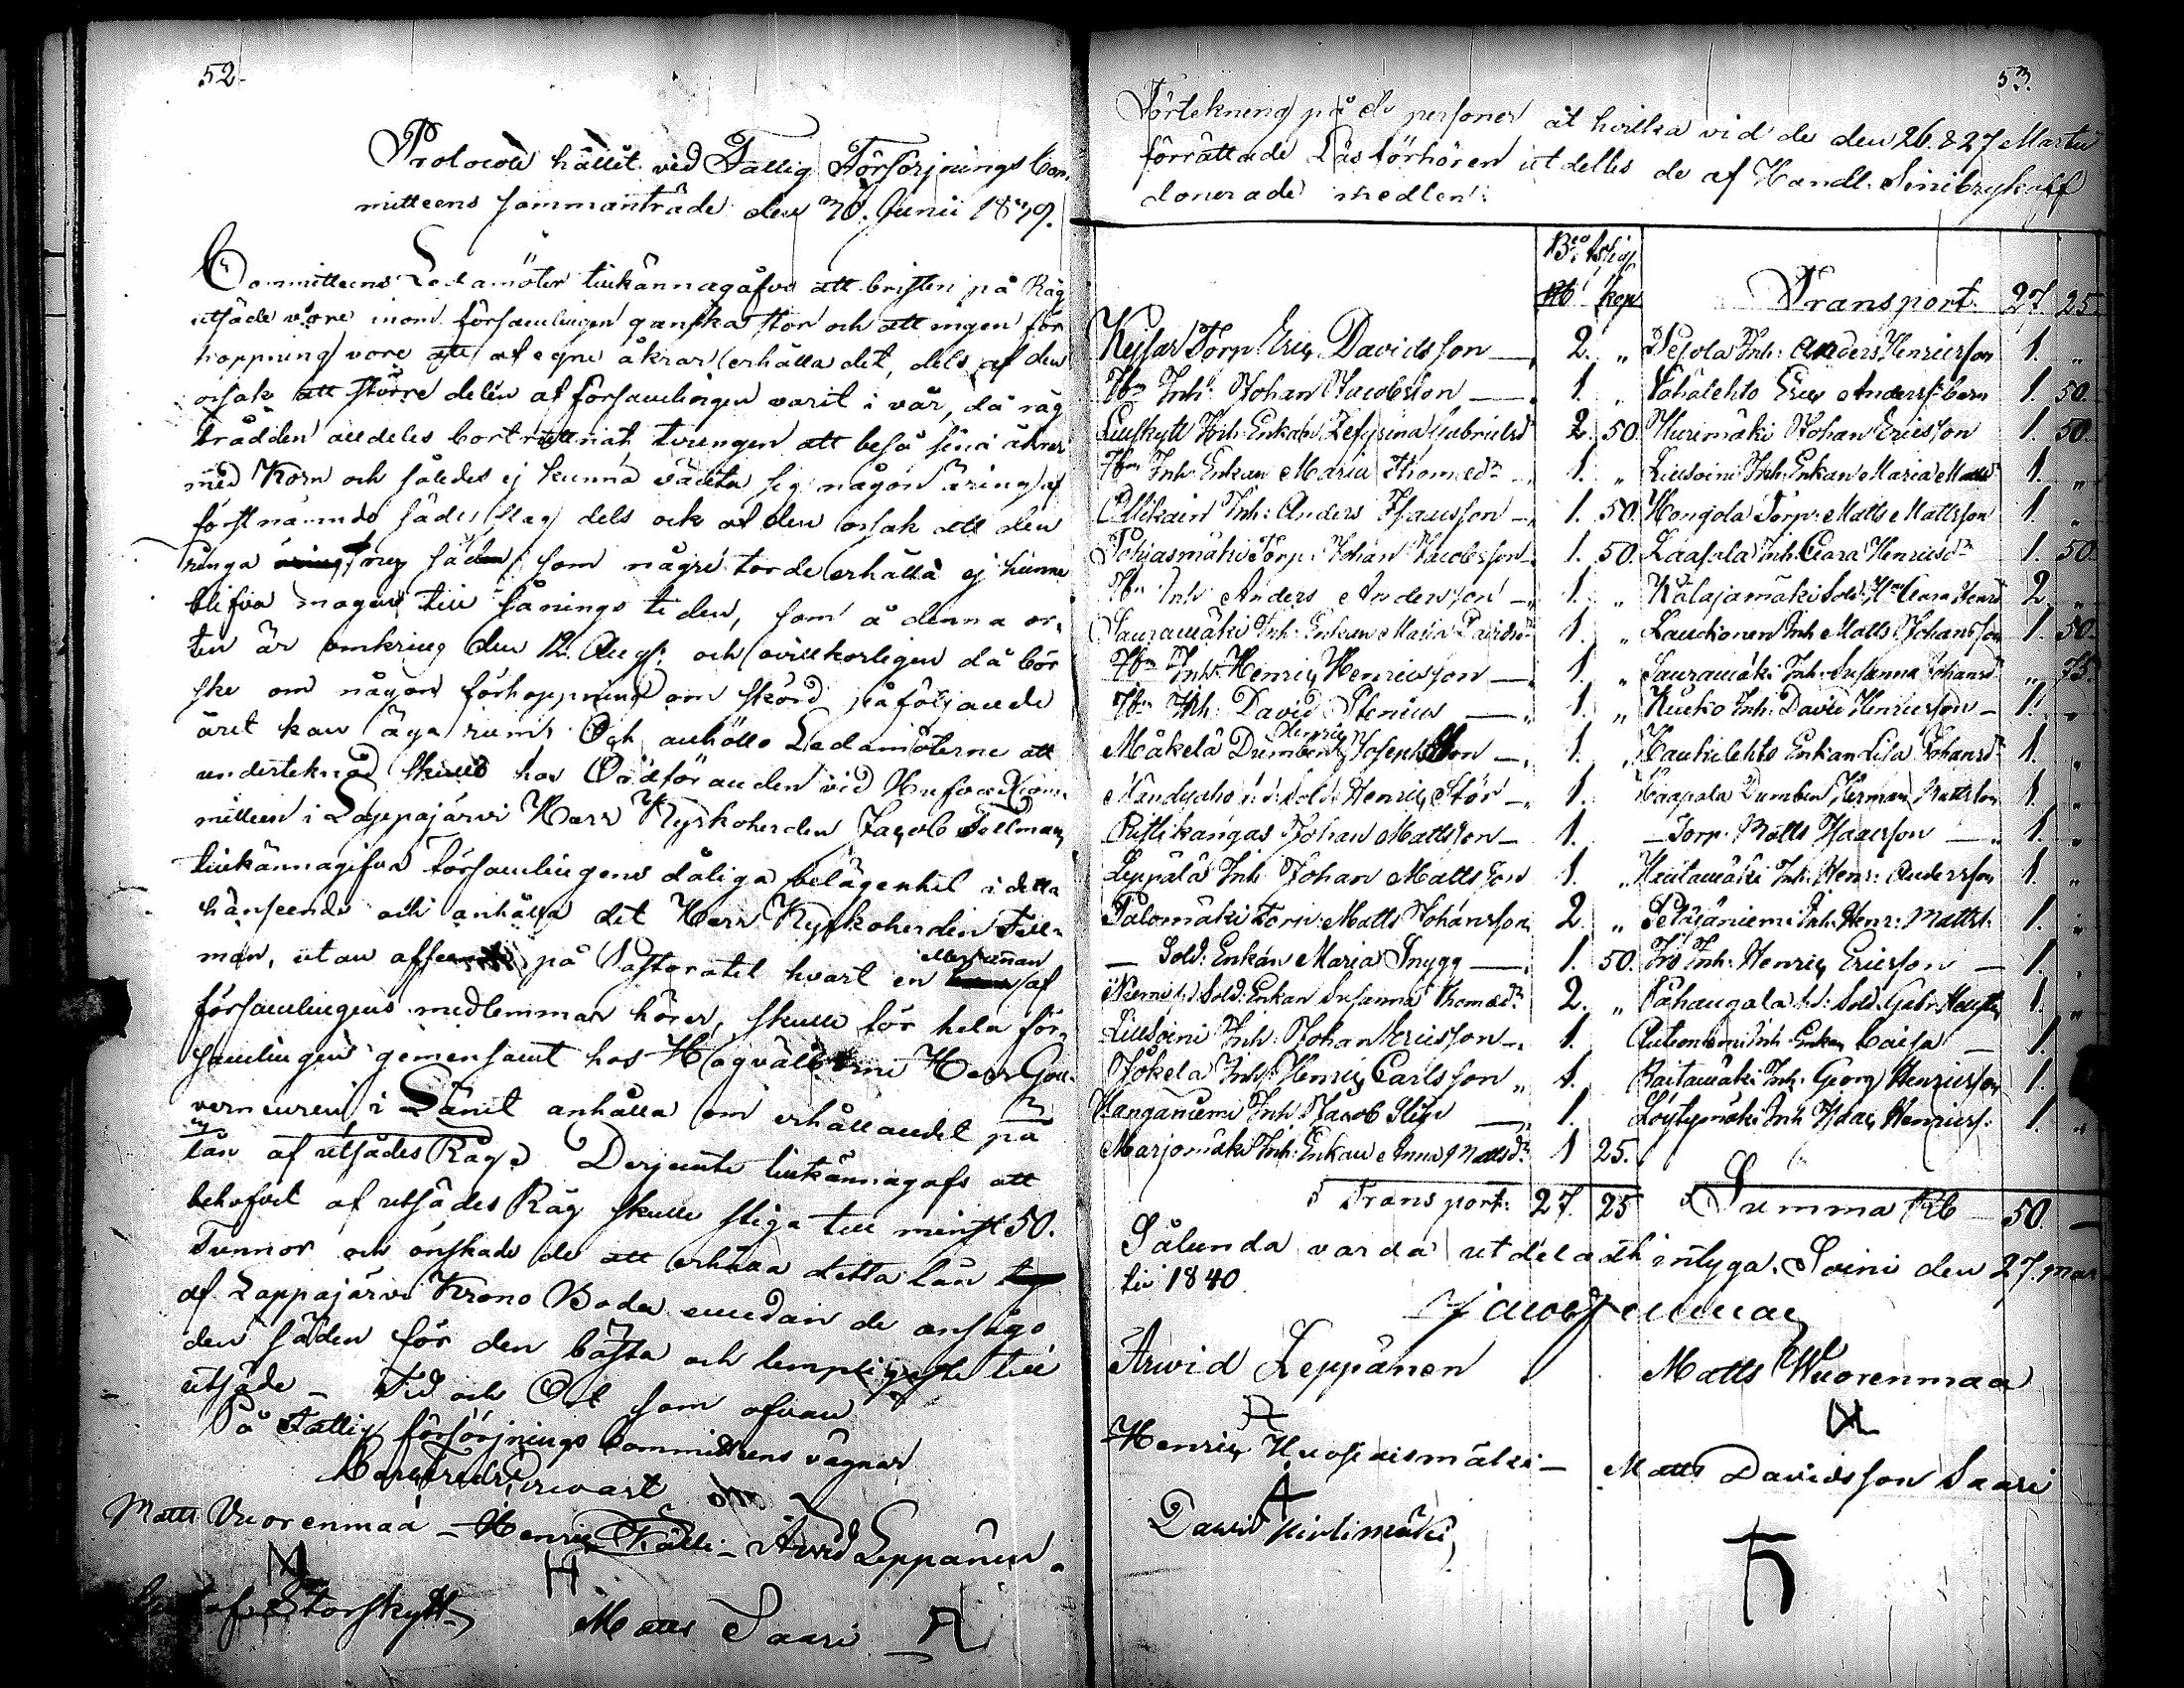 52.
Protocoll hållit vid Fattig Försörjnings Com-
mitteens sammanträde den 30. Junii 1839.
Committeens Ledamöter tillkännagåfvo att bristen på Råg
utsäde vore inom församlingen ganska stor och att ingen för
hoppning vore att af egne åkrar erhålla det, dels af den
orsak att större delen af församlingen varit i vår, då råg
brådden alldeles bortruttnat, tvungen att beså sina åkrar
med Korn och således ej kunna vänta sig någon äring af
förstnämnde sädesslag dels ock af den orsak att den
ringa råg som några torde erhålla ej hinner
blifva mogen till såningstiden, som å denna or-
ten är omkring den 12. Aug: och ovillkorligen då bör
ske om någon förhoppning om skörd påföljande
året kan äga rum. Och anhöllo Ledamöterne att
undertecknad skulle hos Ordföranden vid Hufvud Kom-
mitteen i Lappajärvi Herr Kyrkoherden Jacob Fellman
tillkännagifva församlingens dåliga belägenhet i detta
hänseende och anhålla det Herr Kyrkoherden Fell-
man, utan afseende på Pastoratet hvart en eller annan af
församlingens medlemmar hörer, skulle för hela för-
samlingen gemensamt hos Högvälborne Herr Gou-
verneuren i Länet anhålla om erhållandet på
lån af utsädes Råg. Derjemte tillkännagafs att
behofvet af utsädes Råg skulle stiga till minst 50.
Tunnor och önskade de att erhålla detta lån
af Lappajärvi Krono Boda emedan de ansågo
den säden för den bästa och lempligaste till
utsäde _ Tid och Ort som ofvan
På Fattig försörjnings Committeens vägnar
Matts Vuorenmaa _ Henric Källi _ Arvid Leppänen.
Storskytt
Matts Saari
53.
Förtekning på de personer åt hvilka vid de den 26. & 27 Martii
förrättade Läsförhören utdeltes de af Handl. Sinebrykoff
donerade medlen:
Rb kop
Transport. 27 25.
Keisar Torp. Eric Davidsson 2. „
Pesola Inh: Anders Henricsson 1. „
Inh: Johan Jacobsson 1. „
Vähälehto Eric Anderss: barn 1. 50.
Lillskytt Inh: Enkan Zefyrina Gabrielsd 2. 50.
Hurimäki Johan Ericsson 1. 50.
Inh: Enkan Maria Thomæd:r 1. „
Lillsoini Inh: Enkan Maria Matsd 1. „
Ollikain Inh: Anders Isacsson 1. 50.
Hongola Torp: Matts Mattsson 1. „
Torp: Johan Jacobsson 1. 50.
Laasala Inh: Clara Henricsd:r 1. 50.
Inh: Anders Andersson 1. „
Kalajamäki Sold: Clara Henrd 2. „
Sauramäki Inh: Enkan Maria Davidsd:r 1. „
Laukonen Inh: Matts Johansson 1. 50.
Inh: Henric Henricsson 1. „
Sauramäki Inh: Susanna Johansd „ 75.
Inh: David Stenius 1. „
Kuoko Inh: David Henricsson 1. „
Mäkelä Dumben Henric Josephsson 1. „
Haukilehto Enkan Lisa Johansd 1. „
Sold: Henric Stör 1.
Haapala Dumben Herman Mattsson 1. „
Johan Mattsson 1.
Torp: Matts Isacsson 1. „
Leppälä Inh: Johan Mattsson 1. „
Inh: Henr: Andersson 1. „
Palomäki Torp: Matts Johansson 2. „
Petäjäniemi Inh: Henr: Mattss: 1. „
— Sold: Enkan Maria Snygg 1. 50.
Iso Inh: Henric Ericsson 1. „
Niemi Sold: Enkan Susanna Thomæd:r 2. „
Sold: Gabr: 1. „
Lillsoini Inh: Johan Ericsson 1.
Autioniemi Inh: Enkan Caisa 1.
Jokela Inh: Henric Carlsson 1.
Raitamäki Inh: Georg Henricsson 1.
Kanganiemi Inh: Jacob 1.
Löytymäki Inh: Isaac Henricss: 1. „
Marjomäki Inh: Enkan Anna Mattsd:r 1 25.
Transport: 27. 25
Summa Rb 50. —
Sålunda varda utdeladt intyga. Soini den 27. Mar-
tii 1840.
Jacob Fellman
Arvid Leppänen
Matts Wuorenmaa
Henric Kuosaismäki —
Matts Davidsson Saari
David Kivlimäki